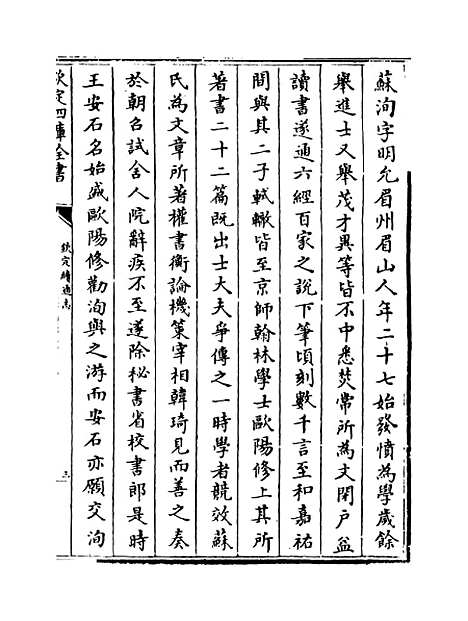 蘇洵字明允眉州眉山人年二十七始發憤為學歲餘
舉進士又舉茂才異等皆不中悉焚常所為文閉户益
讀書遂通六經百家之説下筆頃刻數千言至和嘉祐
間與其二子軾轍皆至京師翰林學士歐陽修上其所
著書二十二篇既出士大夫爭傳之一時學者競效蘇
氏為文章所著權書衡論機策宰相韓琦見而善之奏
於朝召試舍人院辭疾不至遂除秘書省校書郎是時
王安石名始盛歐陽修勸洵與之游而安石亦願交洵
欽定四庫全書
欽定續通志
三